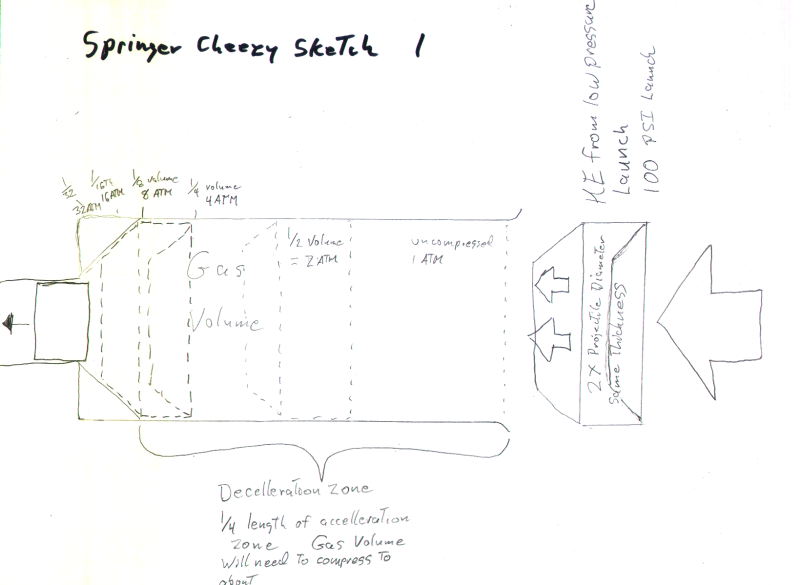 Springer Cheezy Sketch 1
KE from low pressure
Launch
100 PSI Launch
1/32
32 ATM
1/16TH
16 ATM
1/8 volume
8 ATM
1/4 volume
4 ATM
Gas
Volume
1/2 Volume
= 2 ATM
uncompressed
1 ATM
2X Projectile Diameter
Same Thickness
Decelleration zone
1/4 length of accelleration
zone Gas Volume
will need to compress to
about